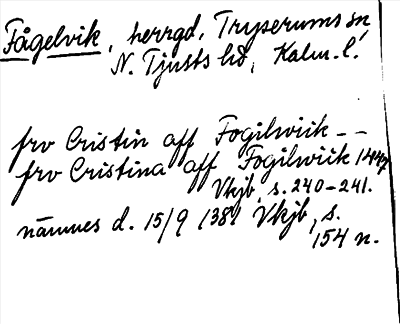 Fågelvik, herrgd, Tryserums sn,
N. Tjusts hd, Kalm. l.
frv Cristin aff Fogilwiik --
frv Cristina aff Fogilwiik 1447
Vkjb, s. 240-241.
nämnes d. 15/9 1381 Vkjb, s.
154 n.